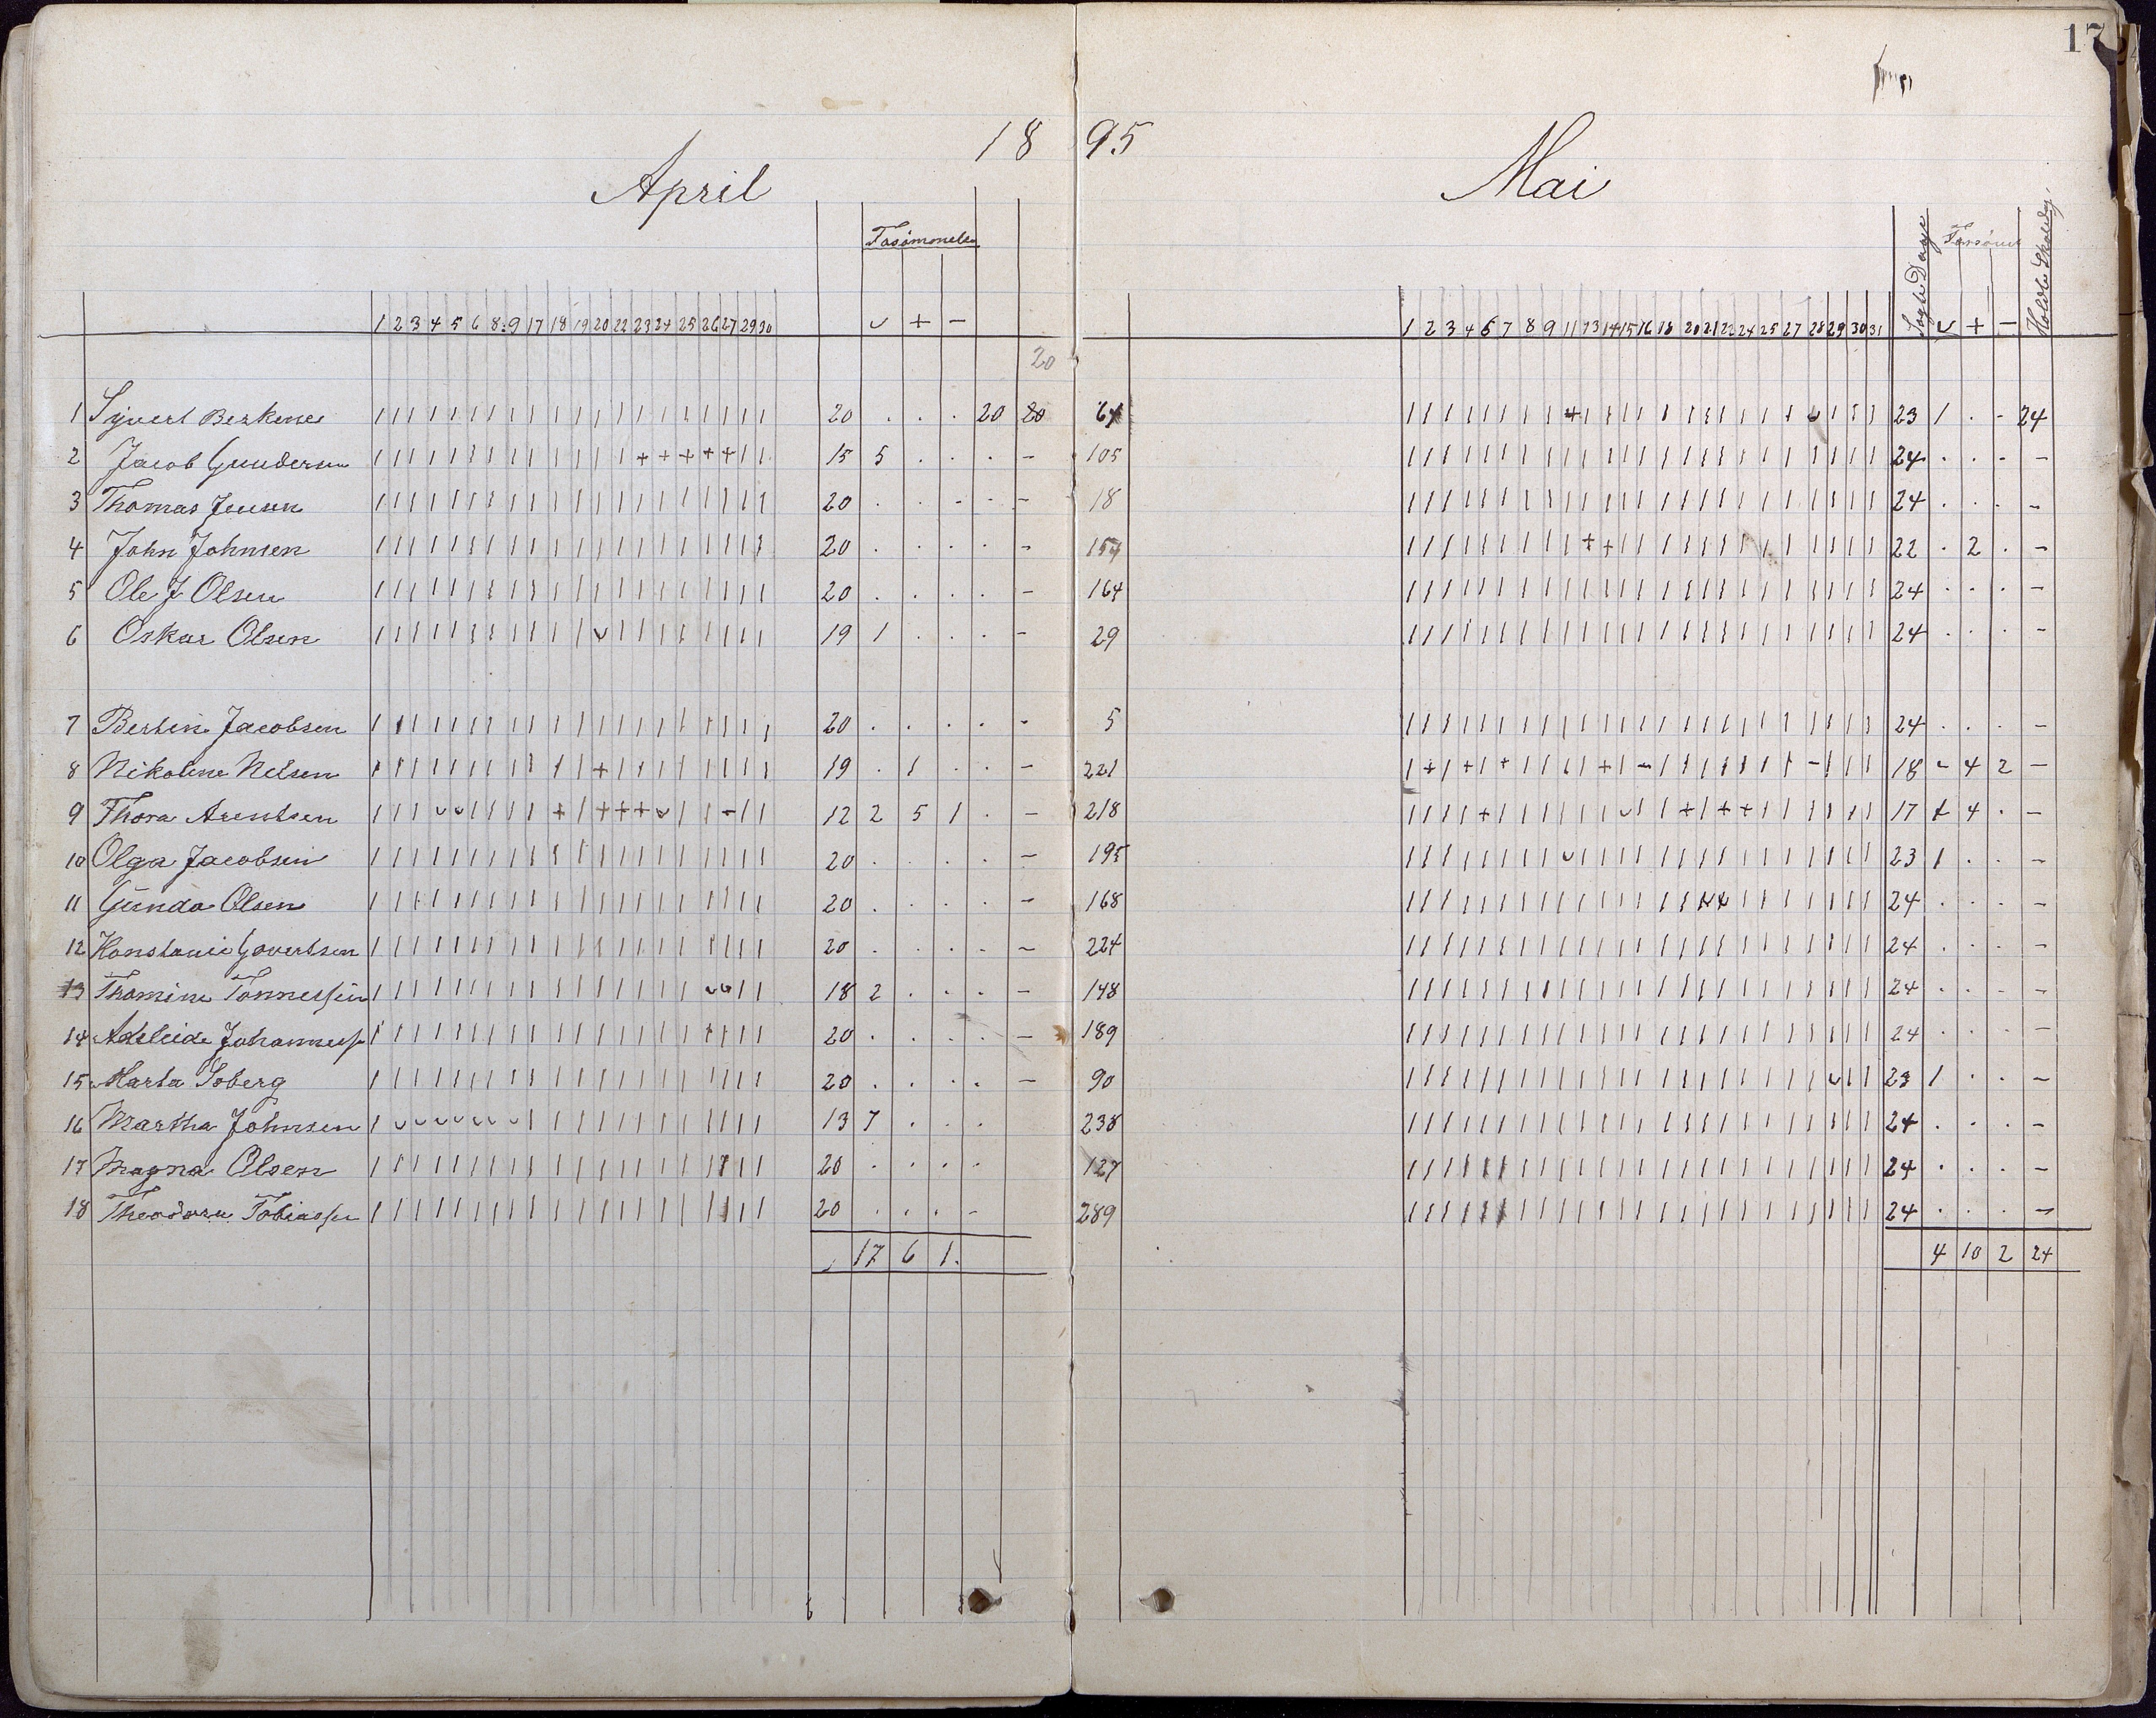 17
18 95
April
Mai
Forsømmelse
Søgte Dage
Forsøm
Holdte Skoledag
1 2 3 4 5 6 8 9 17 18 19 20 22 23 24 25 26 27 29 30 v + -
1 2 3 4 6 7 8 9 11 13 14 15 16 18 20 21 22 24 25 27 28 29 30 31 v + -
20
1 Syvert Berkenes 20 . . . 20 20 64 23 1 . - 24
2 Jacob Gundersen 15 5 . . . - 105 24 . . . -
3 Thomas Jensen 20 . . - - - 18 24 . . . -
4 John Johnsen 20 . . . . - 154 22 . 2 . -
5 Ole J Olsen 20 . . . . - 164 24 . . . -
6 Oskar Olsen 19 1 . . . - 29 24 . . . -
7 Bertine Jacobsen 20 . . . . - 5 24 . . . -
8 Nikoline Nelsen 19 . 1 . . - 221 18 - 4 2 -
9 Thora Arentsen 12 2 5 1 . - 218 17 4 . -
10 Olga Jacobsen 20 . . . . - 195 23 1 . . -
11 Gunda Olsen 20 . . . . - 168 24 . . . -
12 Konstanse Govertsen 20 . . . . - 224 24 . . . -
13 Thomine Tønnessen 18 2 . . . - 148 24 . . . -
14 Adeleide Johannesse 20 . . . . - 189 24 . . . -
15 Marta Soberg 20 . . . . - 90 23 1 . . -
16 Martha Johnsen 13 7 . . . 238 24 . . . -
17 Magna Olsen 20 . . . . 127 24 . . . -
18 Theodora Tobiassen 20 . . . - 289 24 . . . -
17 6 1. 4 10 2 24